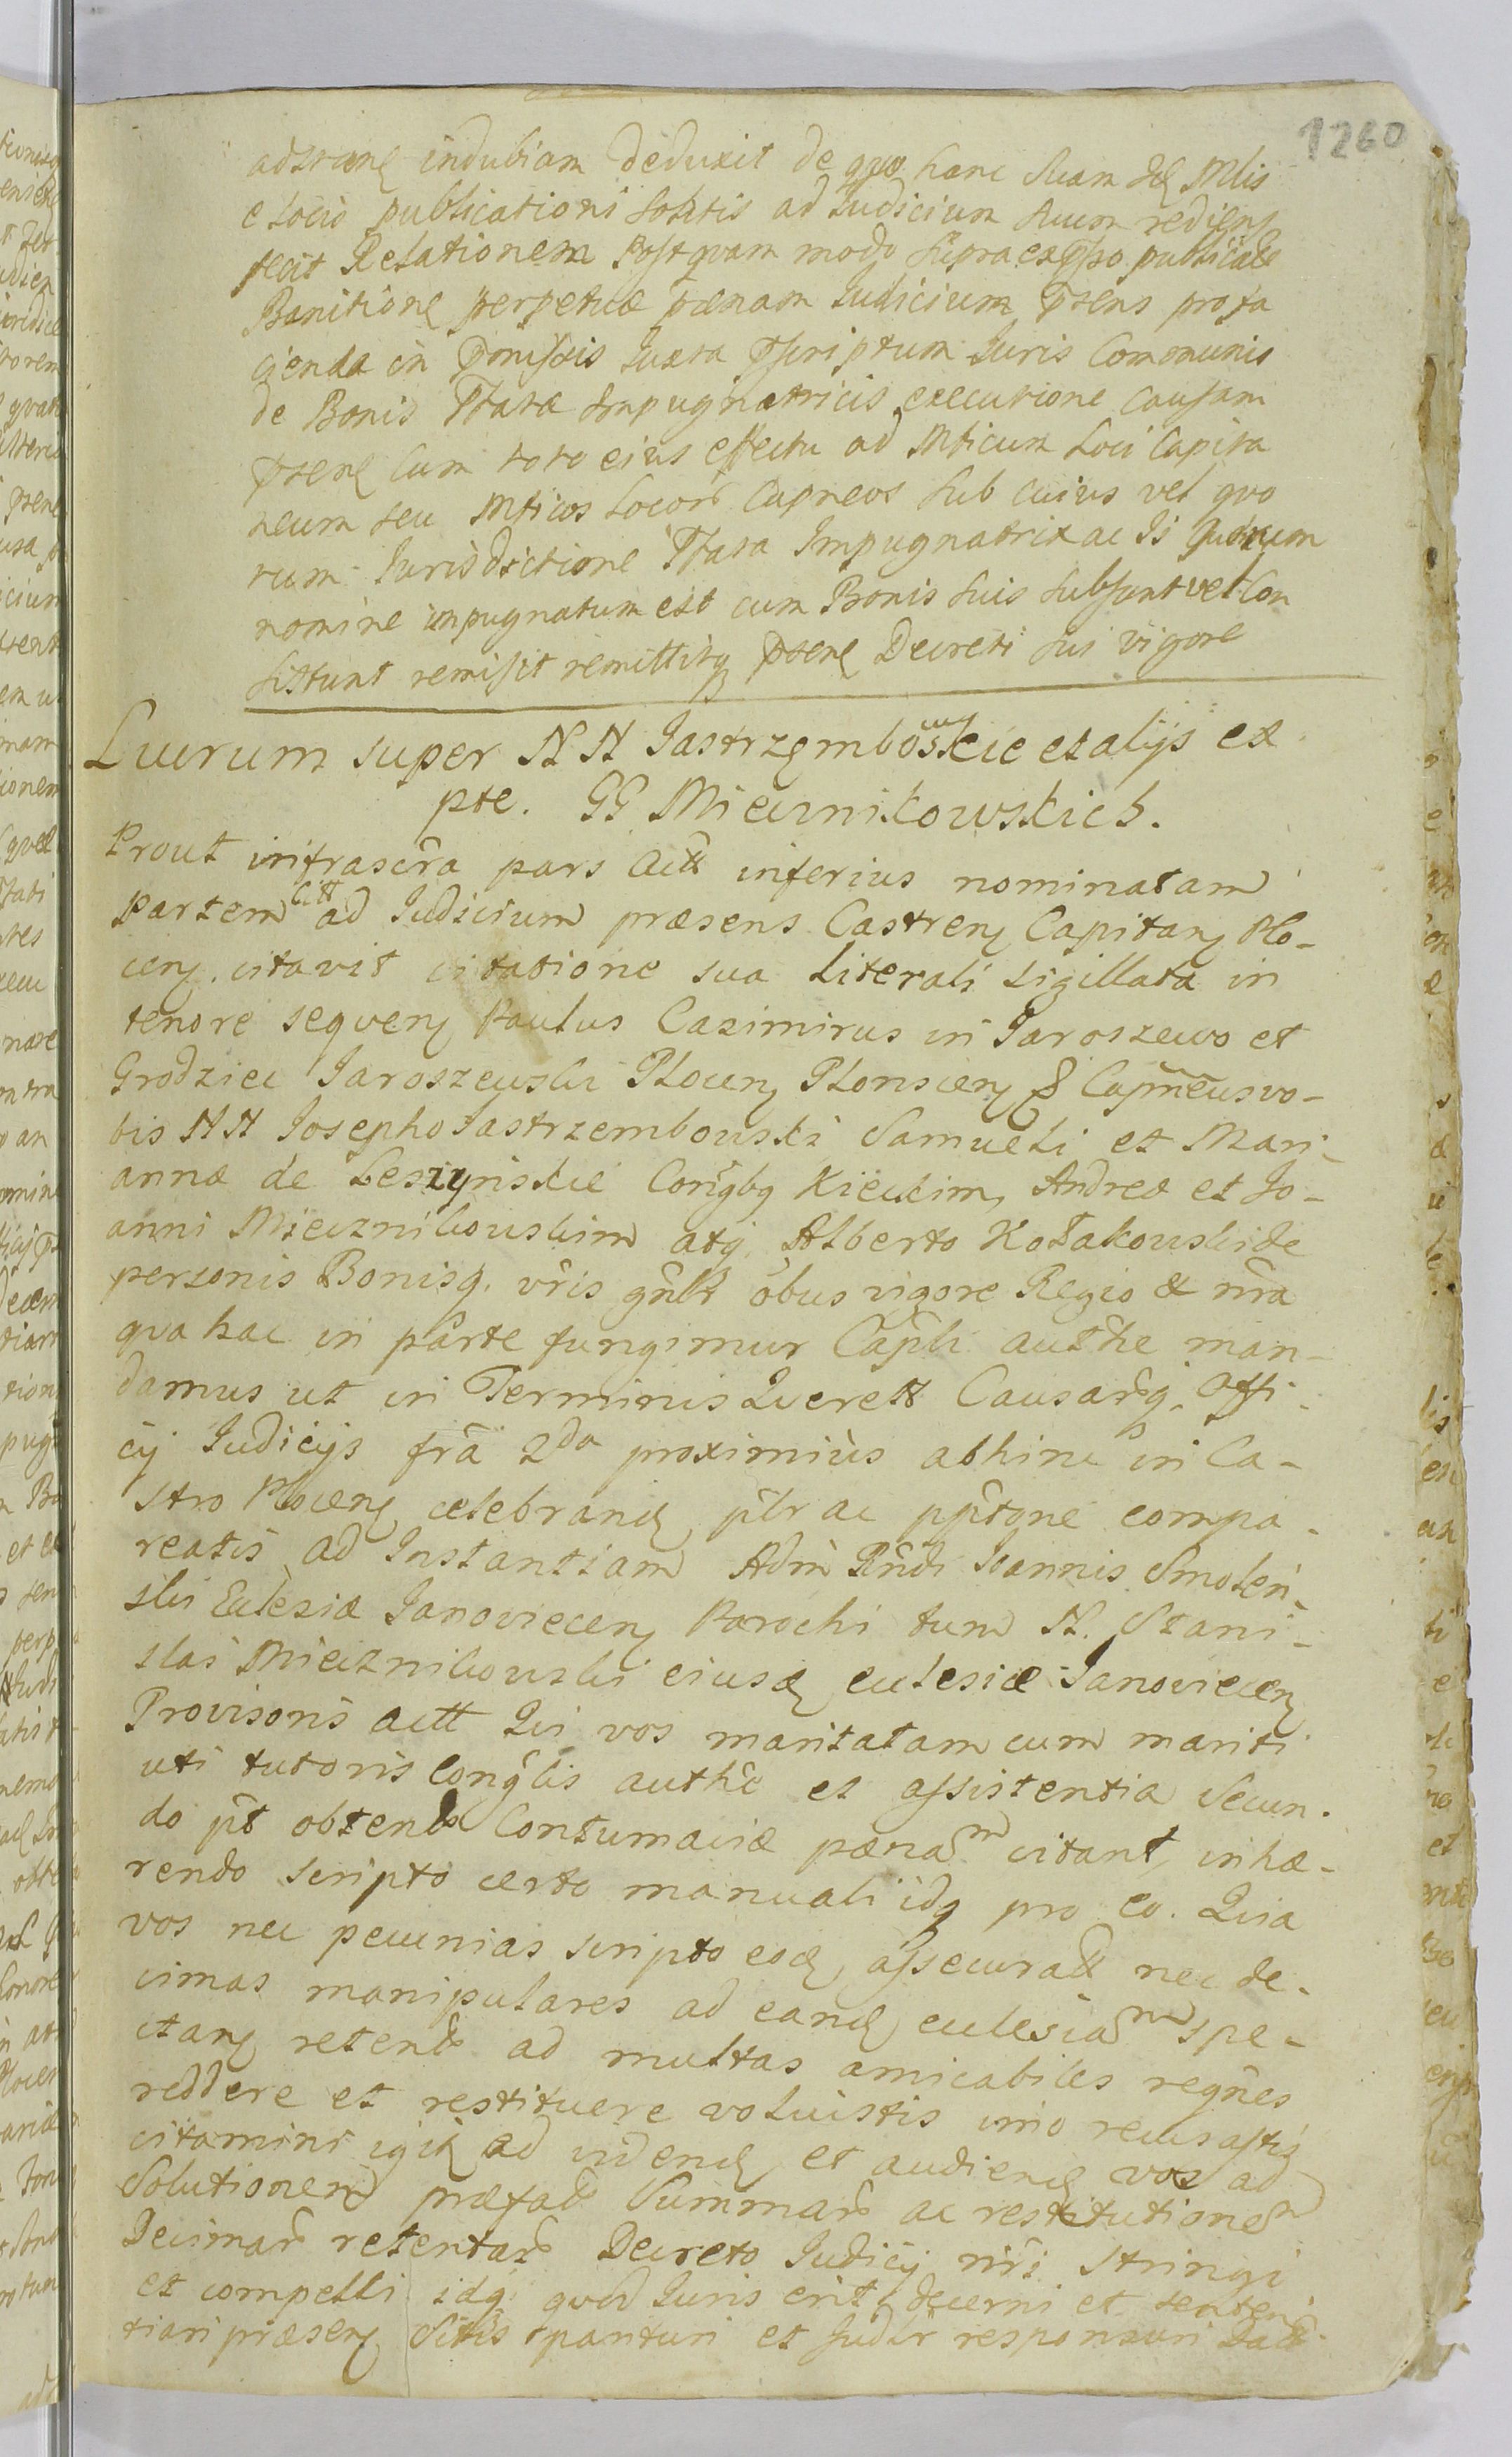 1260
adstrane indubiam deduxit de quo hanc suam Mlis
e locis publicationi solitis ad Judicium suum rediens
fecit Relationem Postquam modo supraexpsso publicate
Banitione perpetuæ pænam Judicium Ptens profa
cienda in Pmissis Juxta Pscriptum Juris Communis
de Bonis Ptatæ Impugnatricis executione Causam
Ptene cum toto eius effectu ad Mticum Loci Capita
neum seu Mticos Locor Capneos sub cuius vel quo
rum Jurisdictione Ptata Impugnatrix ac Is quorum
nomine impugnatum est cum Bonis suis subsunt vel Con
sistunt remisit remittitq Ptene Decreti sui vigore
Lucrum super N N Jastrzembowskie et alijs ex
pte. GG Miecznikowskich.
Prout infrascra pars Actt inferius nominatam
Partem Citt ad Judicium præsens Castren Capitan Plo-
cen. citavit citatione sua Literali Sigillata in
tenore sequen Paulus Casimirus in Jaroszewo et
Grodziec Jaroszewski Plocen Plonscen & Capneus vo-
bis NN Josepho Jastrzembowski Samueli et Mari-
annæ de Leszynskie Conjgbg Kieckim, Andreæ et Jo-
anni Miecznikowskim atq Alberto Kołakowski de
personis Bonisq. vris gnlr obus vigore Regio & nra
qva hac in parte fungimur Capli authe man-
damus ut in Terminis Querell Causarq. Offi-
cij Judicijs fra 2da proximius abhinc in Ca-
stro Plocen celebrand plr ac pptorie compa-
reatis ad Instantiam Adm Rndi Joannis Smolen-
ski Ecclesiæ Janoviecen Parochi tum N. Stani-
slai Miecznikowski eiusd ecclesiæ Janoviecen
Provisoris actt Qui vos maritatam cum mariti
uti tutoris Conglis authe et assistentia Secun-
do pt obtend Contumaciæ pænam citant, inhæ-
rendo scripto certo manuali idq pro eo. Quia
vos nec pecunias scripto eod assecuratt nec de-
cimas manipulares ad eand ecclesiam spe-
ctan retent ad multas amicabiles reqnes
reddere et restituere voluistis imo recusastis
citamini igitt ad videnđ et audiend vos ad
Solutionem præfat Summar ac restitutionem
Decimar retentar Decreto Judicij nri stringi
et compelli idq quod Juris erit decerni et senten
tiari præsen Sitis parituri et Judlr responsuri Datt